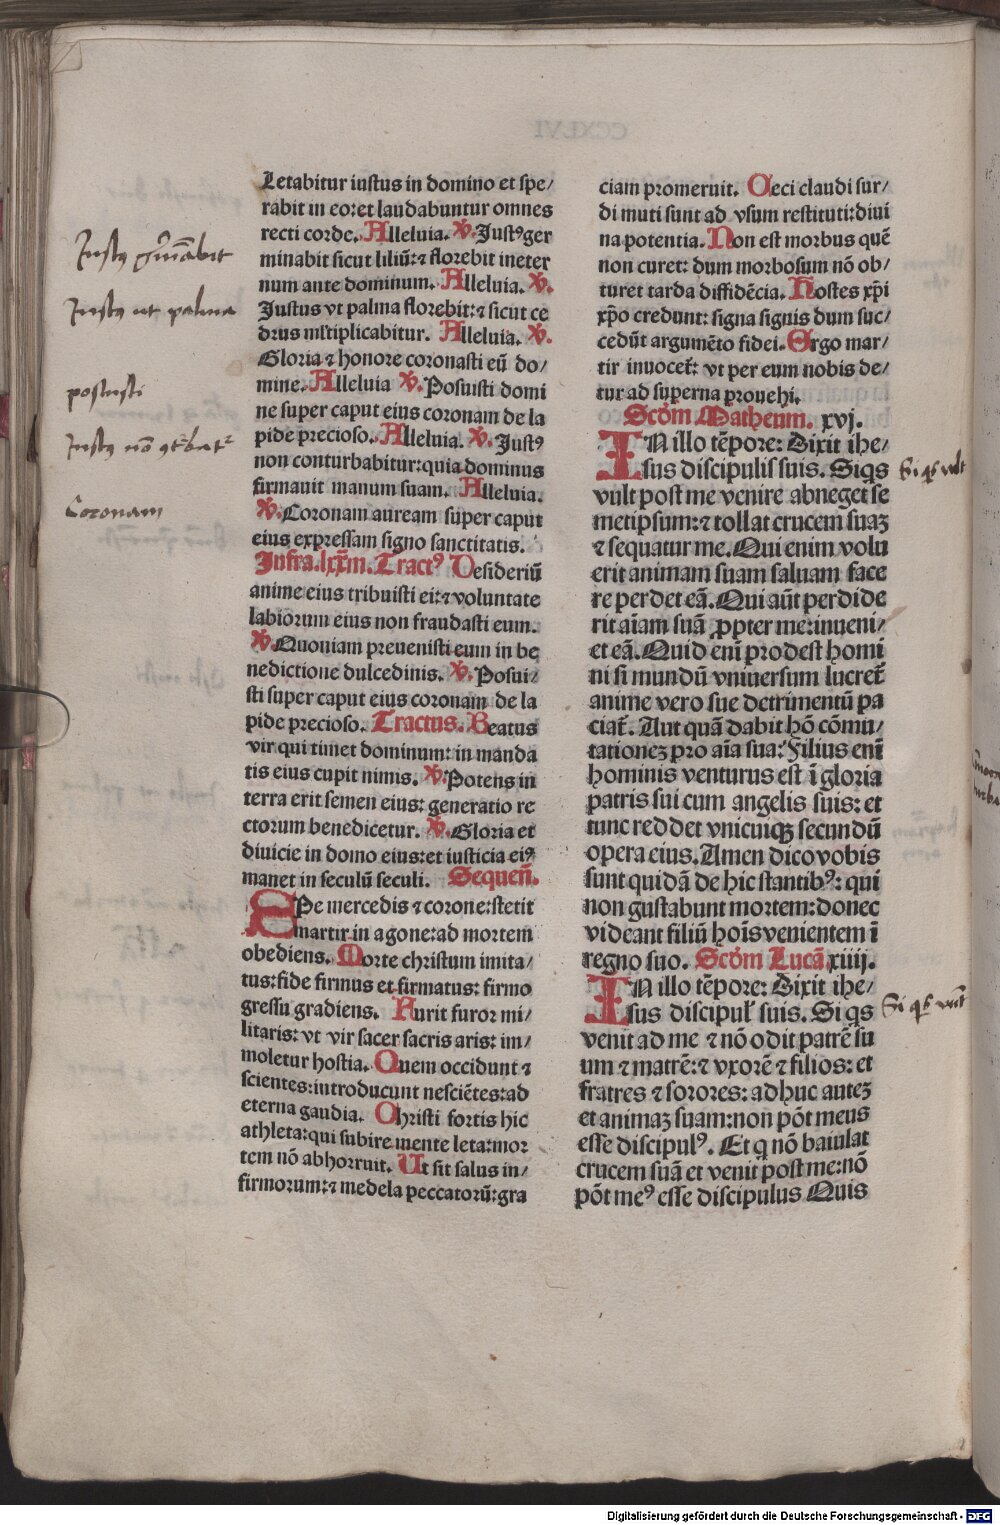 Letabitur iustus in domino et spe/
rabit in eo:et laudabuntur omnes
recti corde. Alleluia. ℣. Justꝰger
minabit sicut liliū:⁊ florebit ineter
num ante dominum. Alleluia. ℣.
Justus vt palma florebit:⁊ sicut ce
drus mltiplicabitur. Alleluia. ℣.
Gloria ⁊ honore coronasti eū do/
mine. Alleluia ℣. Posuisti domi
ne super caput eius coronam de la
pide precioso. Alleluia. ℣. Justꝰ
non conturbabitur:quia dominus
firmauit manum suam. Alleluia.
℣. Coronam auream super caput
eius expressam signo sanctitatis.
Infra.lxx̄m. Tractꝰ Desideriū
anime eius tribuisti ei:⁊ voluntate
labiorum eius non fraudasti eum.
℣. Quoniam preuenisti eum in be
nedictione dulcedinis. ℣. Posui/
sti super caput eius coronam de la
pide precioso. Tractus. Beatus
vir qui timet dominum: in manda
tis eius cupit nimis. ℣. Potens in
terra erit semen eius: generatio re
ctorum benedicetur. ℣. Gloria et
diuicie in domo eius:et iusticia eiꝰ
manet in seculū seculi. Sequen̄.
SPe mercedis ⁊ corone:stetit
martir in agone:ad mortem
obediens. Morte christum imita/
tus:fide firmus et firmatus: firmo
gressu gradiens. Aurit furor mi/
litaris: vt vir sacer sacris aris: im/
moletur hostia. Quem occidunt ⁊
scientes:introducunt nesciētes:ad
eterna gaudia. Christi fortis hic
athleta:qui subire mente leta:mor
tem nō abhorruit. Ut sit salus in/
firmorum:⁊ medela peccatorū:gra
ciam promeruit. Ceci claudi sur/
di muti sunt ad vsum restituti:diui
na potentia. Non est morbus quē
non curet: dum morbosum nō ob/
turet tarda diffidēcia. Hostes xp̄i
xp̄o credunt: signa signis dum suc/
cedūt argumēto fidei. Ergo mar/
tir inuocet᷑: vt per eum nobis de/
tur ad superna prouehi.
Scd̄m Matheum. xvj.
IN illo tēpore: Dixit ihe/
sus discipulis suis. Siqs
vult post me venire abneget se
metipsum:⁊ tollat crucem suaꝫ
⁊ sequatur me. Qui enim volu
erit animam suam saluam face
re perdet eā. Qui aūt perdide
rit aīam suā ꝓpter me:inueni/
et eā. Quid enī prodest homi
ni si mundū vniuersum lucret᷑
anime vero sue detrimentū pa
ciat᷑. Aut quā dabit hō cōmu/
tationeꝫ pro aīa sua? Filius enī
hominis venturus est ī gloria
patris sui cum angelis suis: et
tunc reddet vnicuiqꝫ secundū
opera eius. Amen dico vobis
sunt quidā de hic stantibꝰ: qui
non gustabunt mortem:donec
videant filiū hoīs venientem ī
regno suo. Scd̄m Lucā xiiij.
IN illo tēpore: Dixit ihe/
sus discipuł suis. Si qs
venit ad me ⁊ nō odit patrē su
um ⁊ matrē: ⁊ vxorē ⁊ filios: et
fratres ⁊ sorores: adhuc auteꝫ
et animaꝫ suam:non pōt meus
esse discipulꝰ. Et q nō baiulat
crucem suā et venit post me:nō
pōt meꝰ esse discipulus Quis
Justꝰ gm̄abit
Justꝰ ut palma
posuisti
Justꝰ nō
Coronam
Si qs vult
Si qs venit
Digitalisierung gefördert durch die Deutsche Forschungsgemeinschaft - DFG